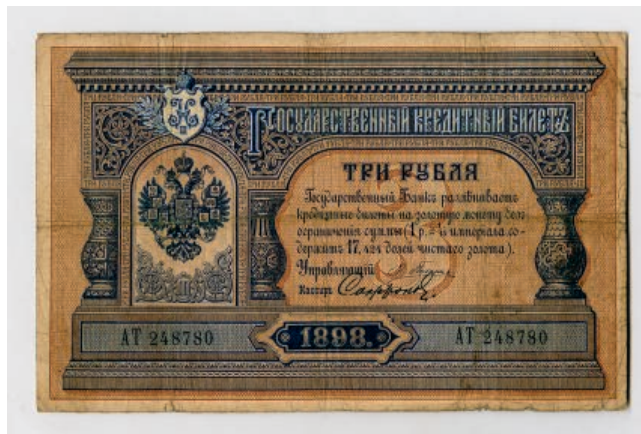 ГОСУДАРСТВЕННЫЙ КРЕДИТНЫЙ БИЛЕТЪ
ТРИ РУБЛЯ
Государственный Банкъ размѣниваетъ
кредитные билеты на золотую монету безъ
ограниченія суммы (1 р. = 1/15 имперіала, со-
держитъ 17,424 долей чистаго золота).
Управляющій
Кассиръ
АТ 248780
1898.
АТ 248780